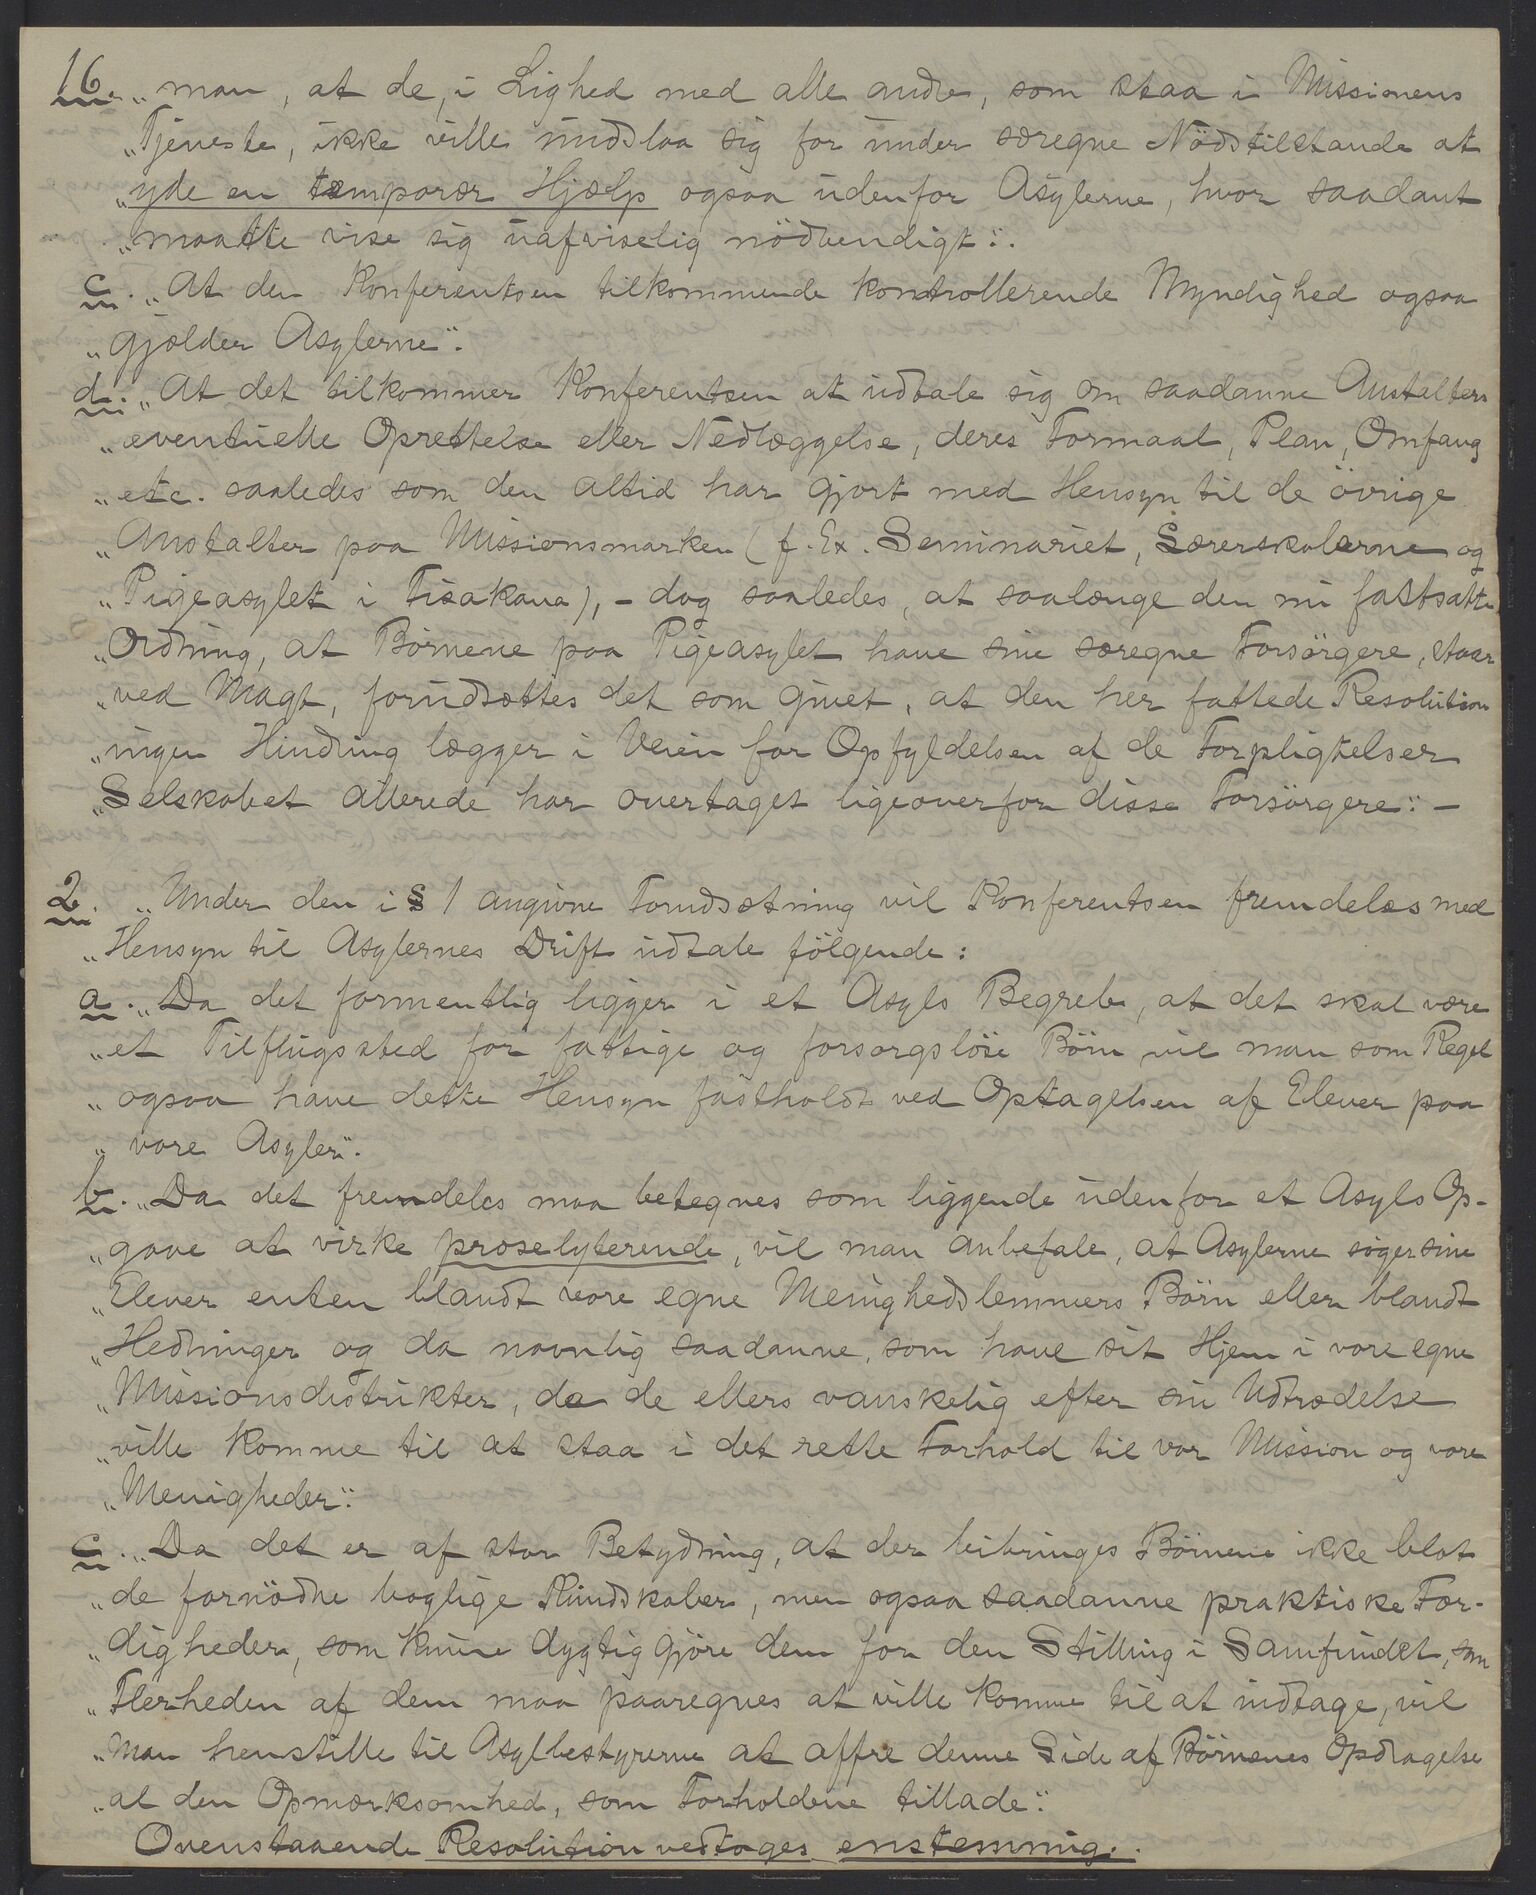 16. „man, at de, i Lighed med alle andre, som staa i Missionens
„Tjeneste, ikke ville undslaa sig for under særegne Nödstilstande at
„yde en temporær Hjælp ogsaa udenfor Asylerne, hvor saadant
„maatte vise sig uafviselig nödvendigt“.
c. „At den Konferentsen tilkommende kontrollerende Myndighed ogsaa
„gjælder Asylerne“.
d. „At det tilkommer Konferentsen at udtale sig om saadanne Anstalters
„eventuelle Oprettelse eller Nedlæggelse, deres Formaal, Plan, Omfang
„etc. saaledes som den altid har gjort med Hensyn til de övrige
„Anstalter paa Missionsmarken (f. Ex. Seminariet, Lærerskolerne og
„Pigeasylet i Tisakana), - dog saaledes, at saalænge den nu fastsatte
„Ordning, at Börnene paa Pigeasylet have sine særegne Forsörgere, staar
„ved Magt, forudsættes det som givet, at den her fattede Resolution
„ingen Hindring lægger i Veien for Opfyldelsen af de Forpligtelser
„Selskabet allerede har overtaget ligeoverfor disse Forsörgere“. -
2. „Under den i § 1 angivne Forudsætning vil Konferentsen fremdeles med
„Hensyn til Asylernes Drift udtale fölgende:
a. „Da det formentlig ligger i et Asyls Begreb, at det skal være
„et Tilflugssted for fattige og forsorgslöse Börn vil man som Regel
„ogsaa have dette Hensyn fastholdt ved Optagelsen af Elever paa
„vore Asyler“.
b. „Da det fremdeles maa betegnes som liggende udenfor et Asyls Op-
„gave at virke proselyterende, vil man anbefale, at Asylerne söger sine
„Elever enten blandt vore egne Menighedslemmers Börn eller blandt
„Hedninger og da navnlig saadanne, som have sit Hjem i vore egne
„Missionsdistrikter, da de ellers vanskelig efter sin Udtrædelse
„ville komme til at staa i det rette Forhold til vor Mission og vore
„Menigheder“.
c. „Da det er af stor Betydning, at der bibringes Börnene ikke blot
„de fornödne boglige Kundskaber, men ogsaa saadanne praktiske Fær-
„digheder, som kunne dygtiggjöre dem for den Stilling i Samfundet, som
„Flerheden af dem maa paaregnes at ville komme til at indtage, vil
„man henstille til Asylbestyrerne at offre denne Side af Börnenes Opdragelse
„al den Opmærksomhed, som Forholdene tillade“.
Ovenstaaende Resolution vedtoges enstemmig.